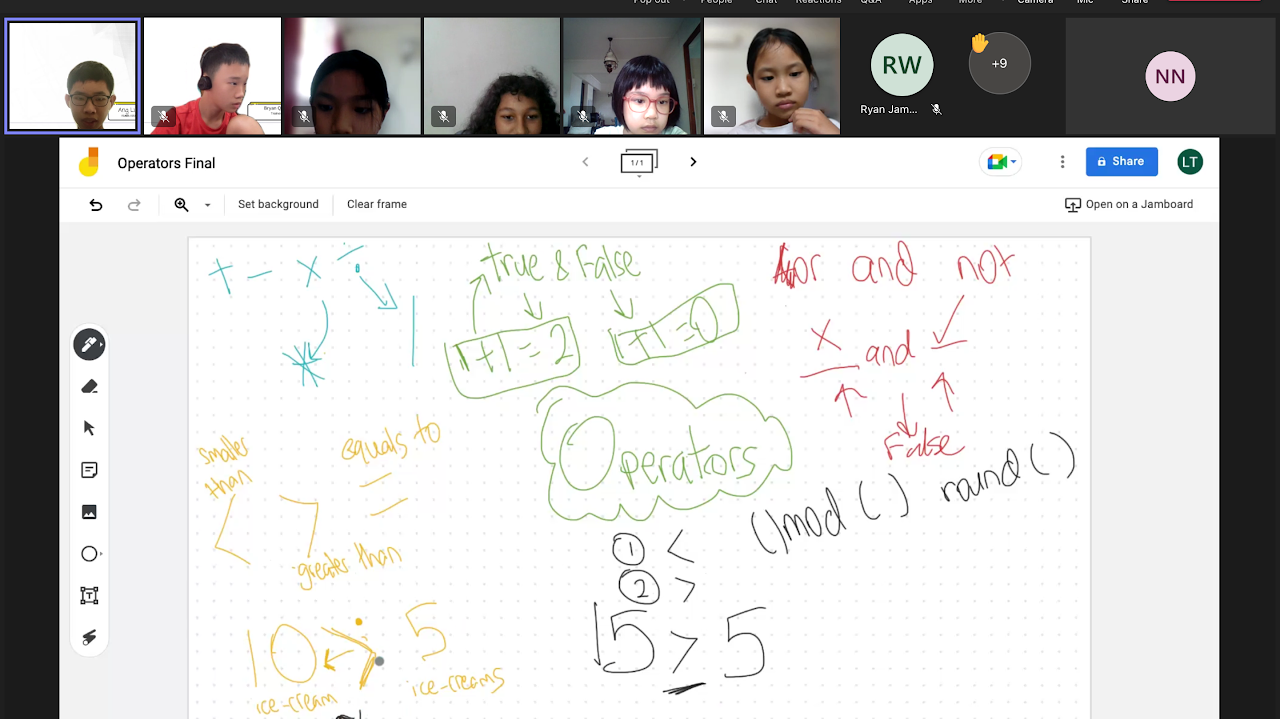 Pop out People Chat Reactions Q&A Apps More Camera Mic Share
RW
Ryan Jam...
+9
NN
Operators Final
1/1
Share
LT
Set background
Clear frame
Open on a Jamboard
+ - x ÷
*
/
True & False
1+1=2
1+1=0
or and not
x and ✓
False
smaller
than
<
equals to
=
>
greater than
Operators
( )mod ( ) round ( )
① <
② >
10 > 5
ice-cream
ice-creams
15 > 5